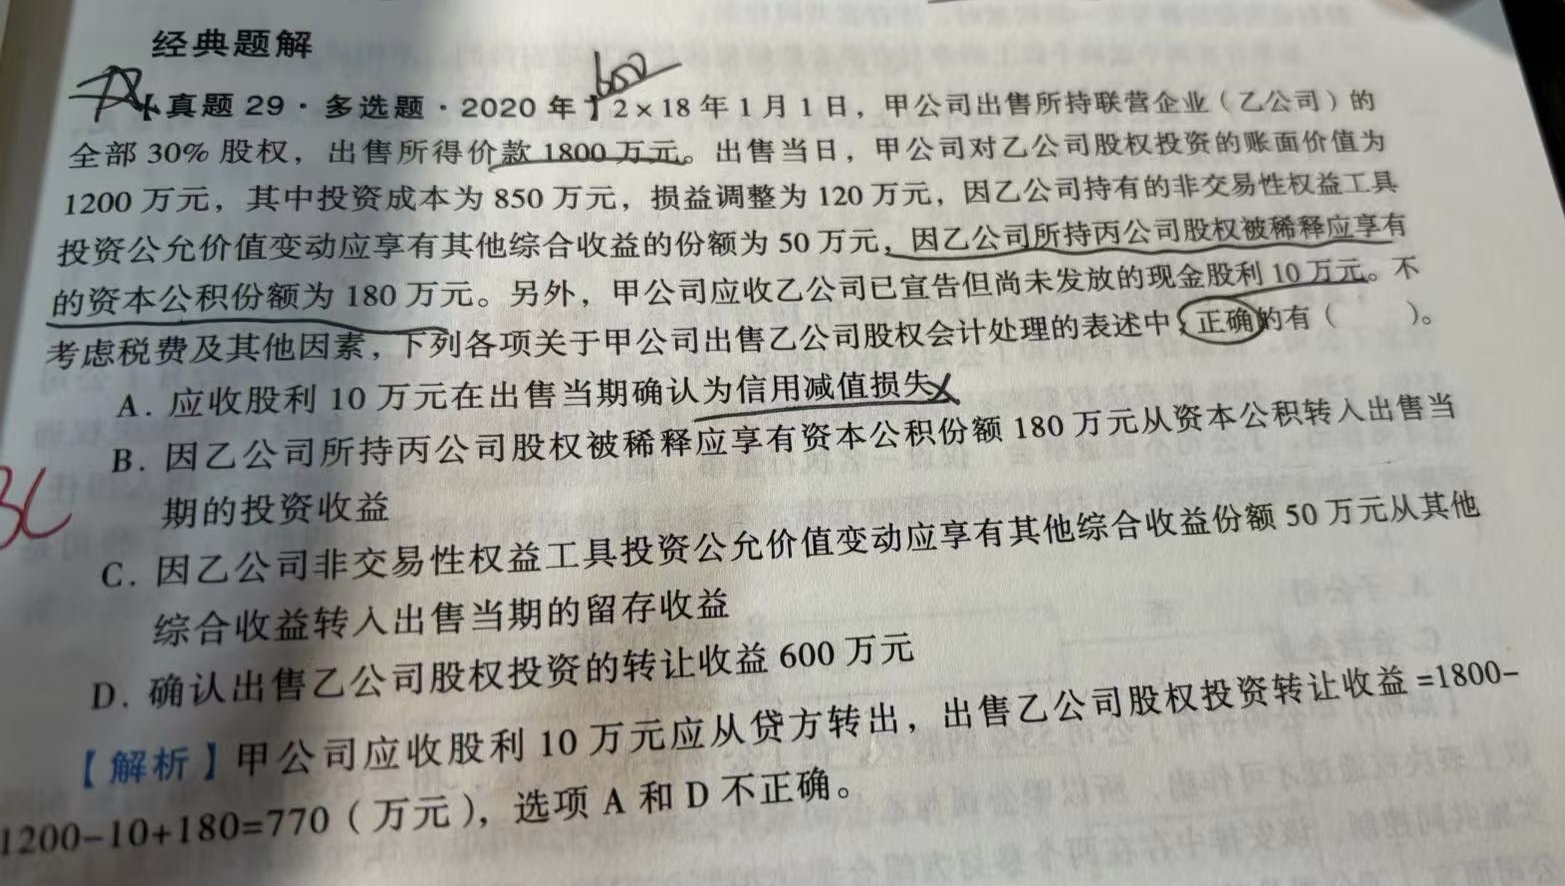 经典题解
600
【真题 29·多选题·2020 年】2×18 年 1 月 1 日，甲公司出售所持联营企业（乙公司）的
全部 30% 股权，出售所得价款 1800 万元。出售当日，甲公司对乙公司股权投资的账面价值为
1200 万元，其中投资成本为 850 万元，损益调整为 120 万元，因乙公司持有的非交易性权益工具
投资公允价值变动应享有其他综合收益的份额为 50 万元，因乙公司所持丙公司股权被稀释应享有
的资本公积份额为 180 万元。另外，甲公司应收乙公司已宣告但尚未发放的现金股利 10 万元。不
考虑税费及其他因素，下列各项关于甲公司出售乙公司股权会计处理的表述中，正确的有（　　）。
A. 应收股利 10 万元在出售当期确认为信用减值损失
B. 因乙公司所持丙公司股权被稀释应享有资本公积份额 180 万元从资本公积转入出售当
期的投资收益
BC
C. 因乙公司非交易性权益工具投资公允价值变动应享有其他综合收益份额 50 万元从其他
综合收益转入出售当期的留存收益
D. 确认出售乙公司股权投资的转让收益 600 万元
【解析】甲公司应收股利 10 万元应从贷方转出，出售乙公司股权投资转让收益 =1800-
1200-10+180=770（万元），选项 A 和 D 不正确。